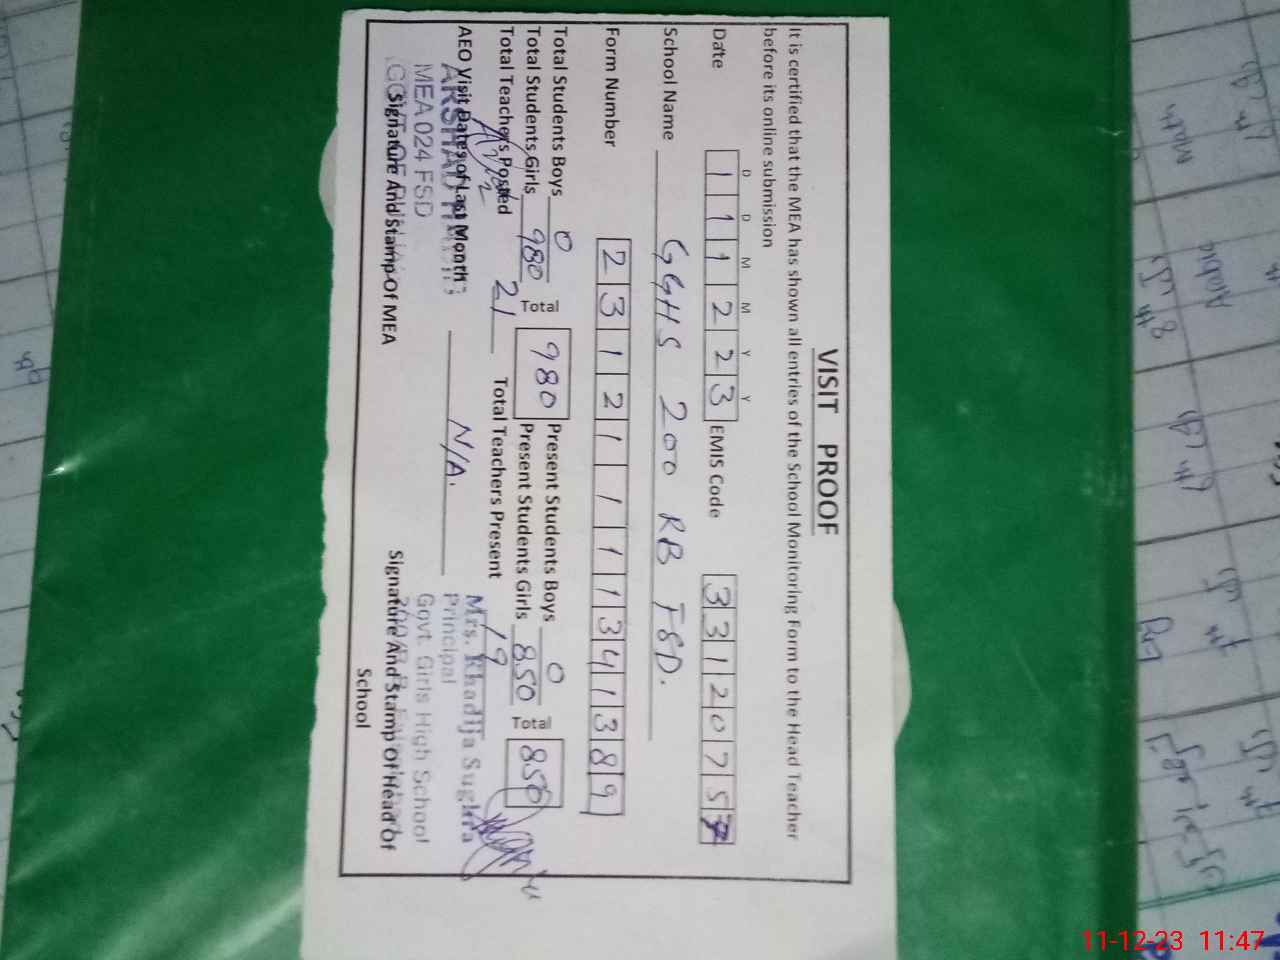 VISIT PROOF
It is certified that the MEA has shown all entries of the School Monitoring Form to the Head Teacher
before its online submission
D D M M Y Y
Date 111223 EMIS Code 3312075
School Name GGHS 200 RB FSD.
Form Number 23121111341389
Total Students Boys 0 Total 980 Present Students Boys 0 Total 850
Total Students Girls 980 Present Students Girls 850
Total Teachers Posted 21 Total Teachers Present 19
AEO Visit Dates of Last Month: N/A.
ARSHAD
MEA 024 FSD
Signature And Stamp Of MEA
Mrs. Khadija Sughra
Principal
Govt. Girls High School
Signature And Stamp Of Head Of
School
Math
Arabic
8th
11-12-23 11:47